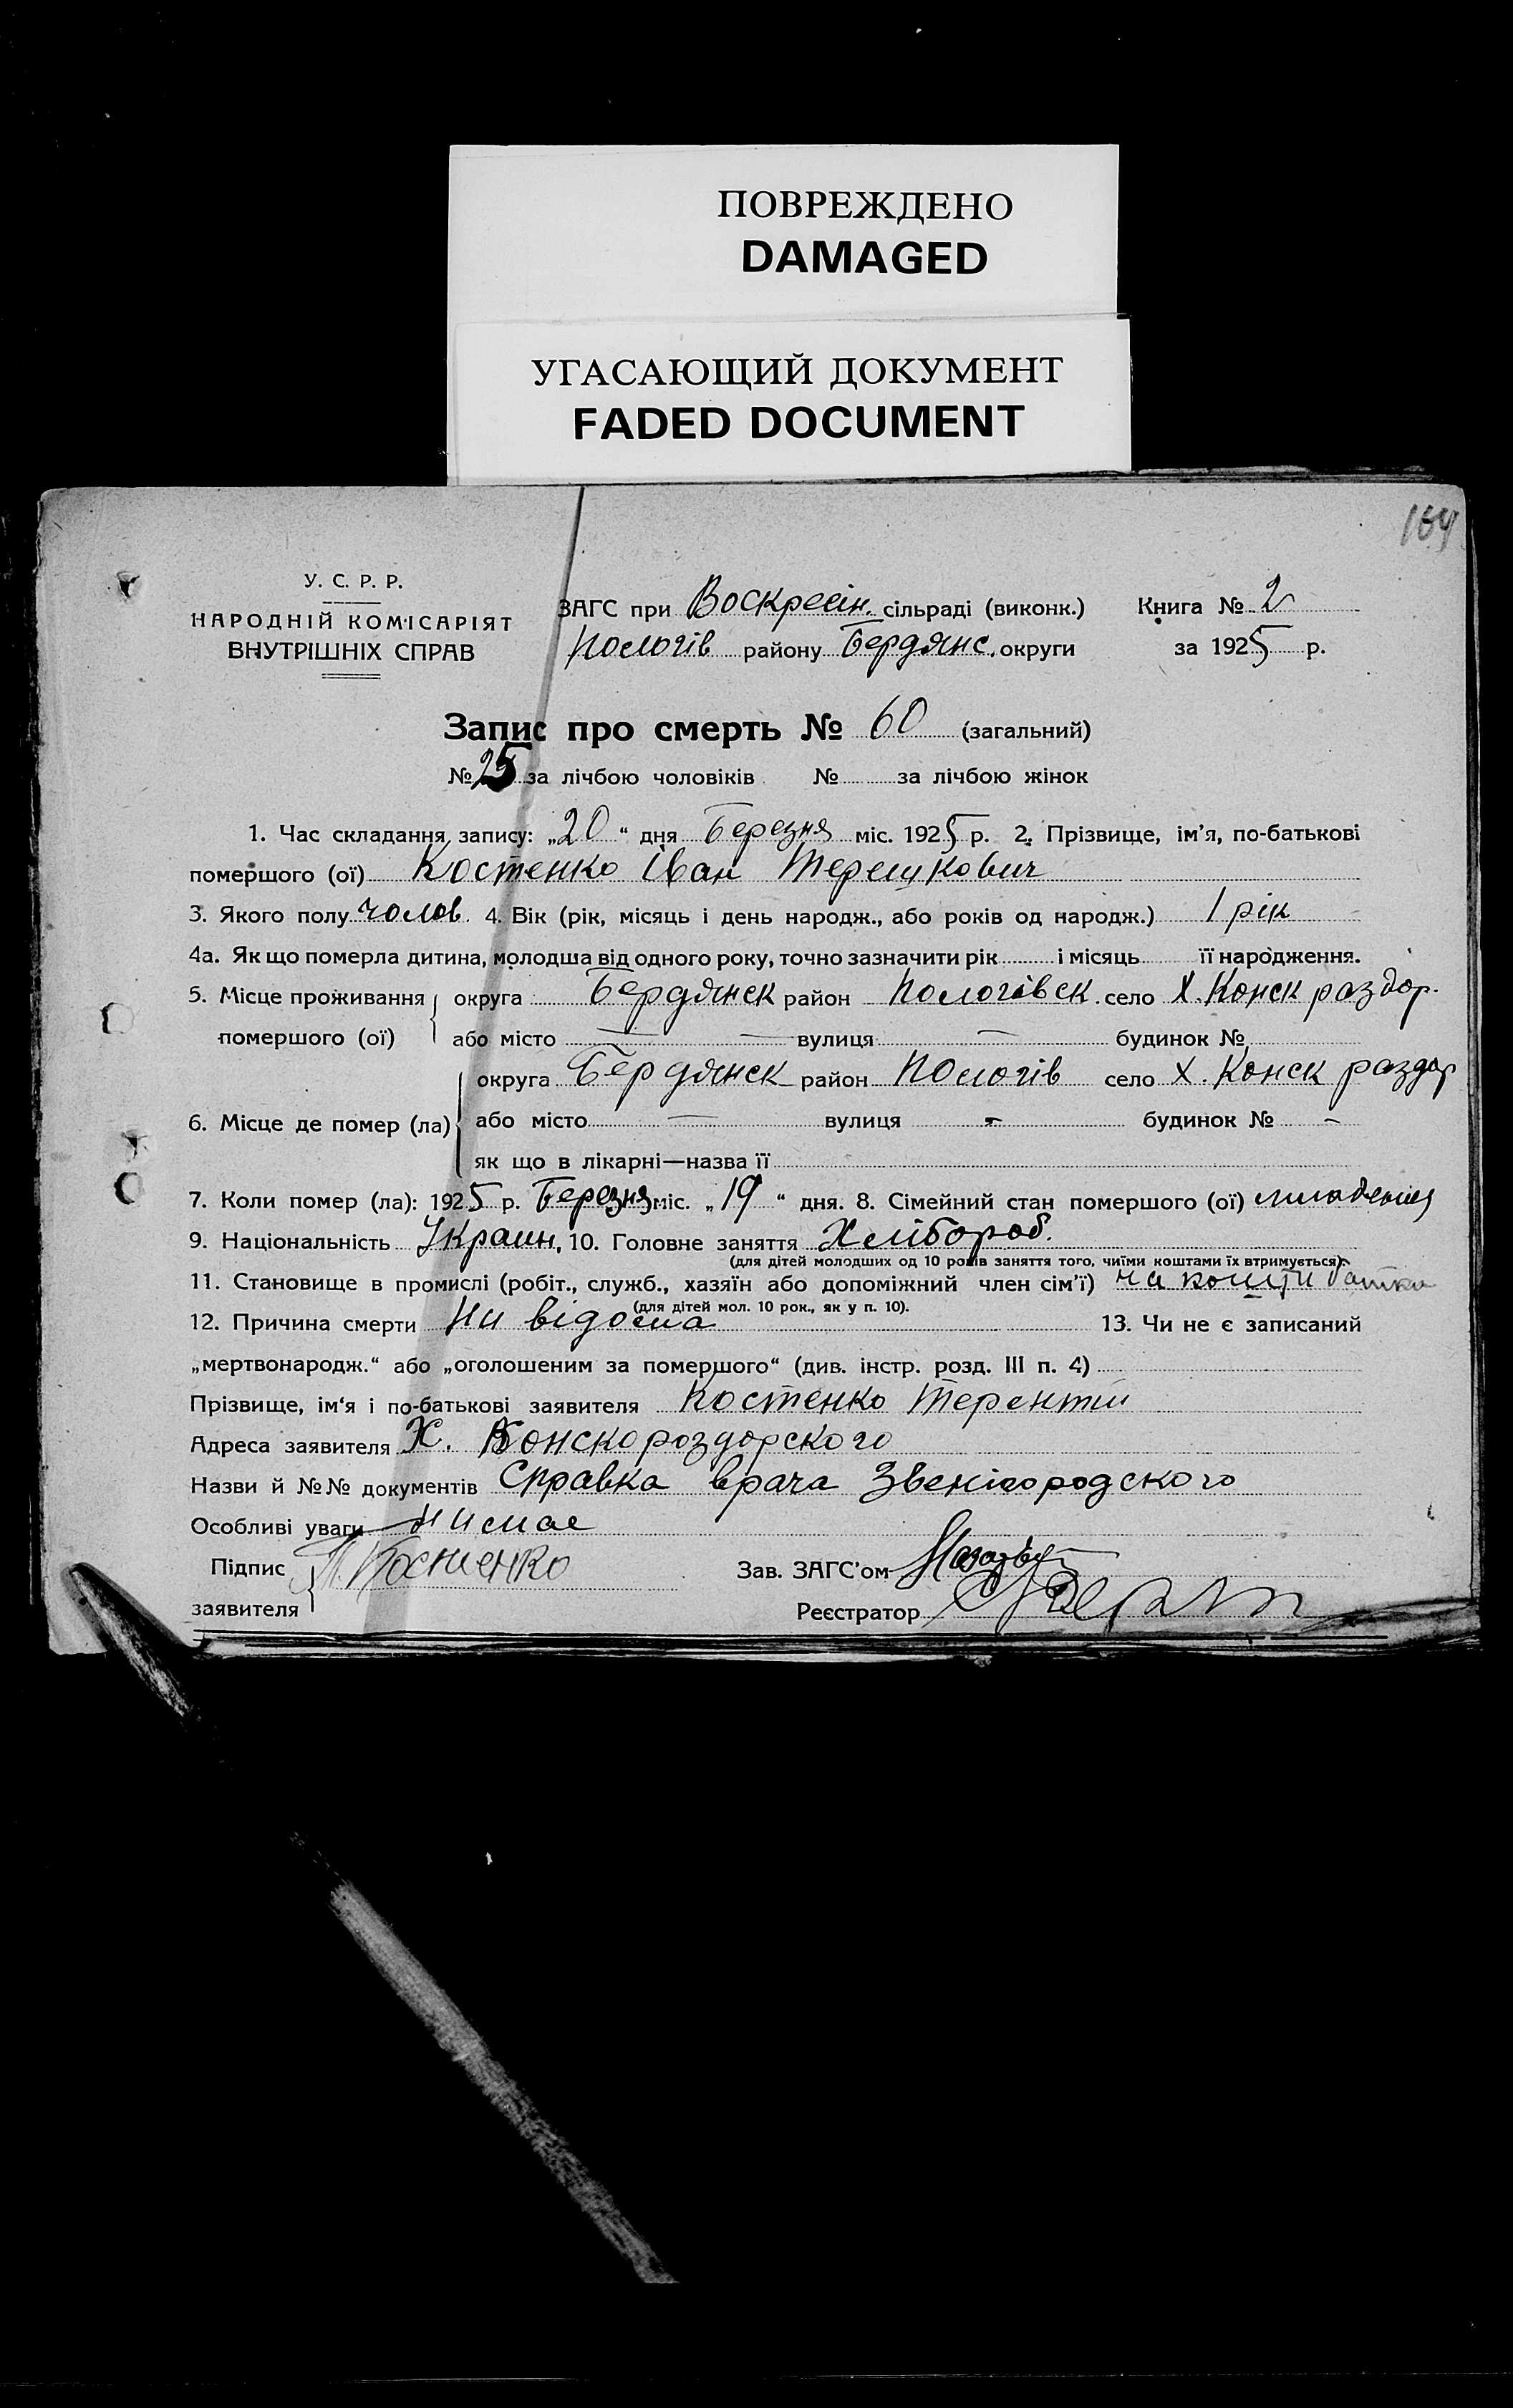 ПОВРЕЖДЕНО
DAMAGED
УГАСАЮЩИЙ ДОКУМЕНТ
FADED DOCUMENT
У. С. Р. Р.
НАРОДНІЙ КОМІСАРІЯТ
ВНУТРІШНІХ СПРАВ
ЗАГС при Воскресін. сільраді (виконк.) Книга № 2
Пологів району Бердянс. округи за 1925 р.
Запис про смерть № 60 (загальний)
№ 25 за лічбою чоловіків № за лічбою жінок
1. Час складання запису: „20“ дня Березня міс. 1925 р. 2. Прізвище, ім’я, по-батькові
помершого (ої) Костенко Іван Терешкович
3. Якого полу чолов. 4. Вік (рік, місяць і день народж., або років од народж.) 1 рік
4а. Як що померла дитина, молодша від одного року, точно зазначити рік і місяць її народження.
5. Місце проживання округа Бердянск район Пологівск. село Х. Конск раздор.
помершого (ої) або місто — вулиця — будинок №
округа Бердянск район Пологів село х. Конск раздор
6. Місце де помер (ла) або місто — вулиця - будинок № -
як що в лікарні—назва її
7. Коли помер (ла): 1925 р. Березня міс. „19“ дня. 8. Сімейний стан помершого (ої) младенец
9. Національність Украин. 10. Головне заняття Хлібороб.
(для дітей молодших од 10 років заняття того, чиїми коштами їх втримується).
11. Становище в промислі (робіт., служб., хазяїн або допоміжний член сім’ї) на кошти батка
(для дітей мол. 10 рок., як у п. 10).
12. Причина смерти Ни відома 13. Чи не є записаний
„мертвонародж.“ або „оголошеним за помершого“ (див. інстр. розд. III п. 4)
Прізвище, ім‘я і по-батькові заявителя Костенко Терентий
Адреса заявителя Х. Конскороздорского
Назви й №№ документів Справка врача Звенігородского
Особливі уваги нимае
Підпис Т. Костенко Зав. ЗАГС’ом
заявителя Реєстратор